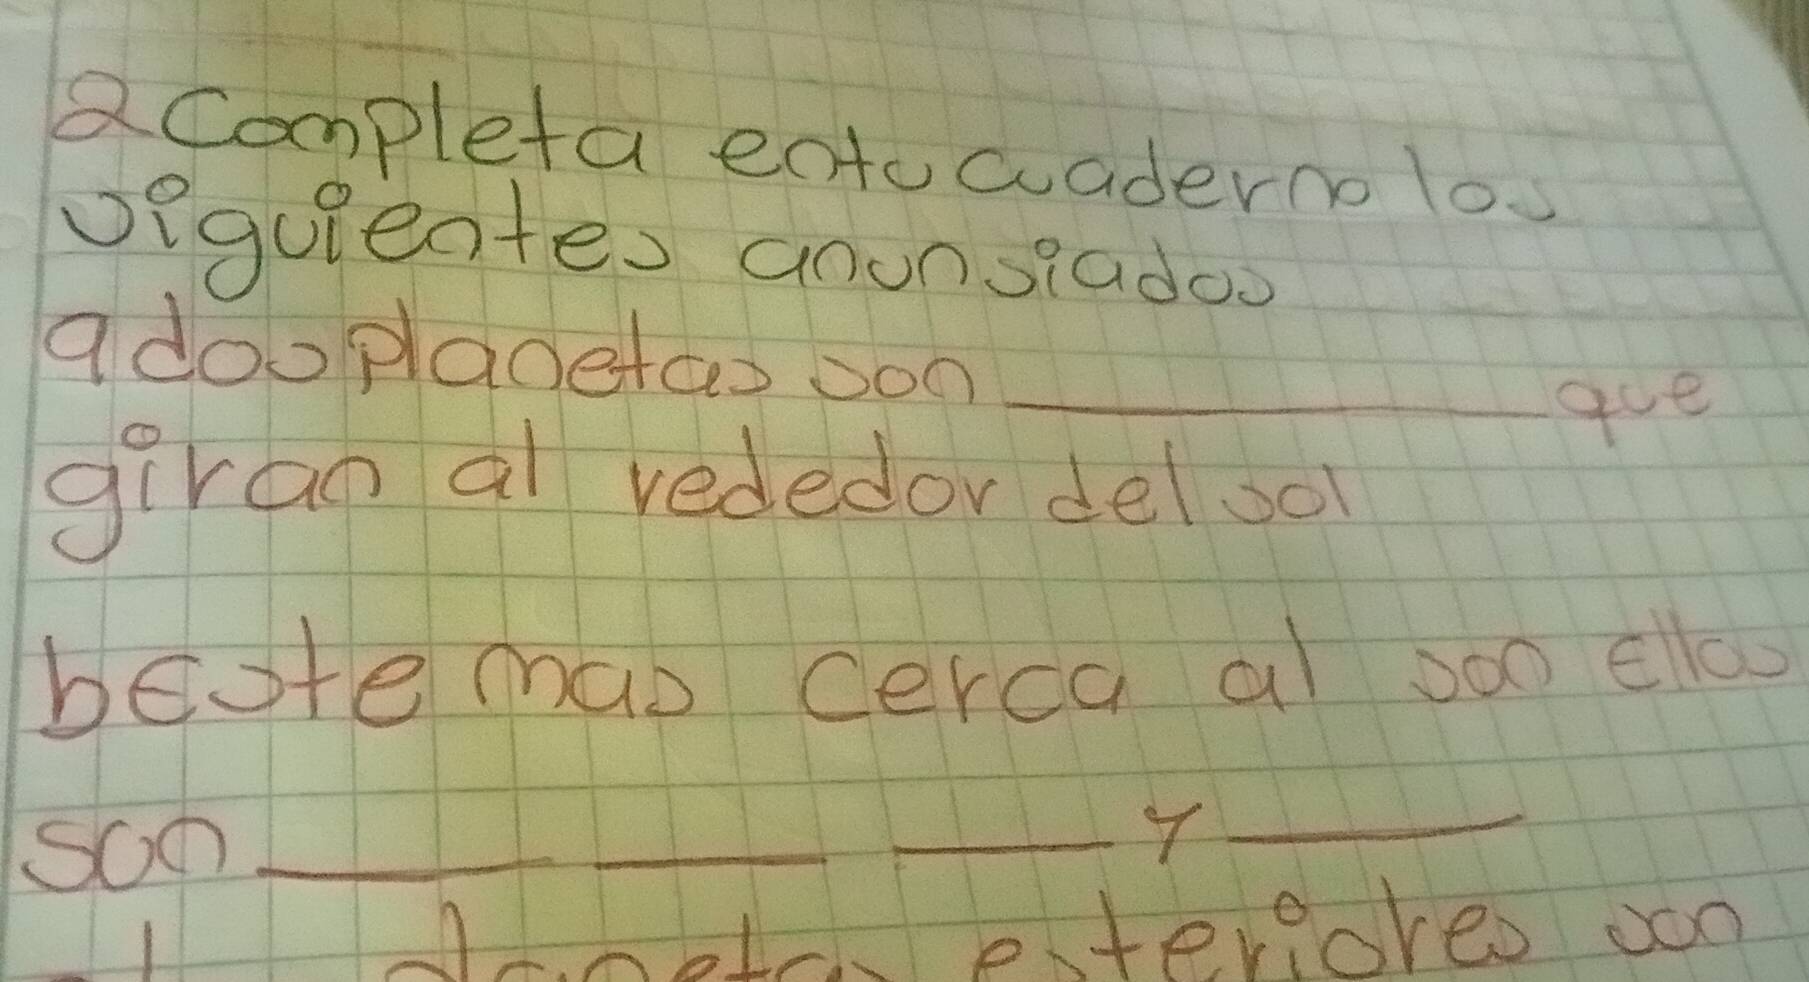 2 Completa entu cuaderno los
siguientes anunsiados
a dos planetas son __________ que
giran al rededor del sol
b Este mas cerca al son Ellos
son ______ _____ _____ y ______
esteriores son